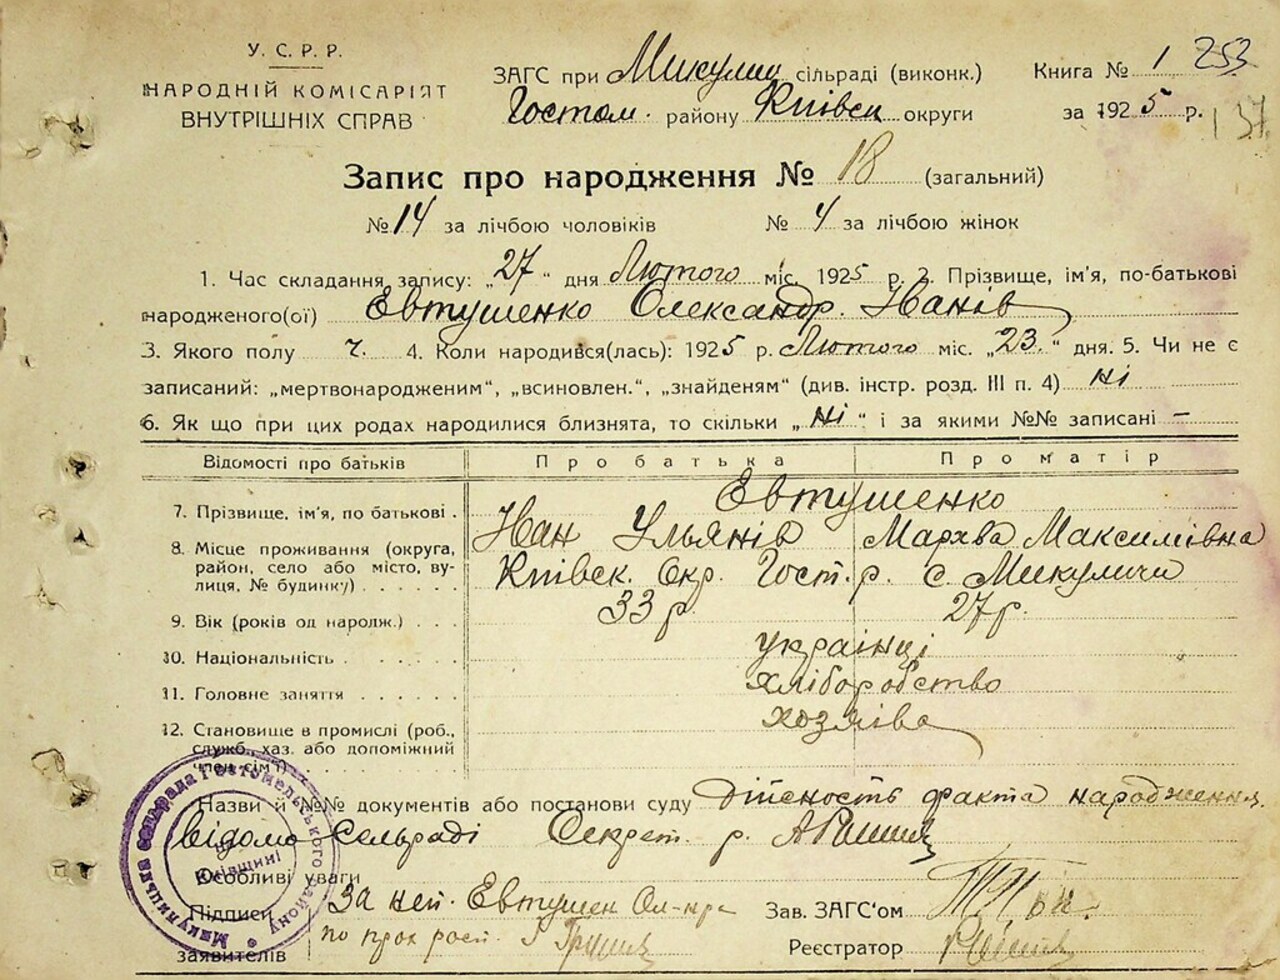 У. С. Р. Р.
НАРОДНІЙ КОМІСАРІЯТ
ВНУТРІШНІХ СПРАВ
ЗАГС при Микулич сільраді (виконк.)
Гостом. району Київськ округи
Книга № 1 253
за 1925 р. 137
Запис про народження № 18 (загальний)
№ 14 за лічбою чоловіків № 4 за лічбою жінок
1. Час складання запису: „27“ дня Лютого міс. 1925 р. 2. Прізвище, ім'я, по-батькові
народженого(ої) Евтушенко Олександр. Иванів
3. Якого полу ч. 4. Коли народився(лась): 1925 р. Лютого міс. „23.“ дня. 5. Чи не є
записаний: „мертвонародженим“, „всиновлен.“, „знайденям“ (див. інстр. розд. III п. 4) ні
6. Як що при цих родах народилися близнята, то скільки „ні“ і за якими №№ записані —
Відомості про батьків Про батька Про матір
7. Прізвище, ім'я, по батькові . Евтушенко
Иван Ульянів Мархва Максимівна
8. Місце проживання (округа,
район, село або місто, ву-
лиця, № будинку) . . . . . . Київск. Окр. Гост. р. с. Микуличи
9. Вік (років од народж.) . . . 33 р 27 р.
10. Національність . . . . . . українці
11. Головне заняття . . . . . . хліборобство
12. Становище в промислі (роб.,
служб., хаз. або допоміжний
член сім'ї) . . . . . . . . хозяіва
Назви й №№ документів або постанови суду Дійсность факта народження
відомо Сельраді Секрет. р.
Особливі уваги
Підписи
заявителів
За неп. Евтушен Ол-нра
Зав. ЗАГС'ом
Реєстратор
Микулицька сельрада Гостомельського району
Київщині